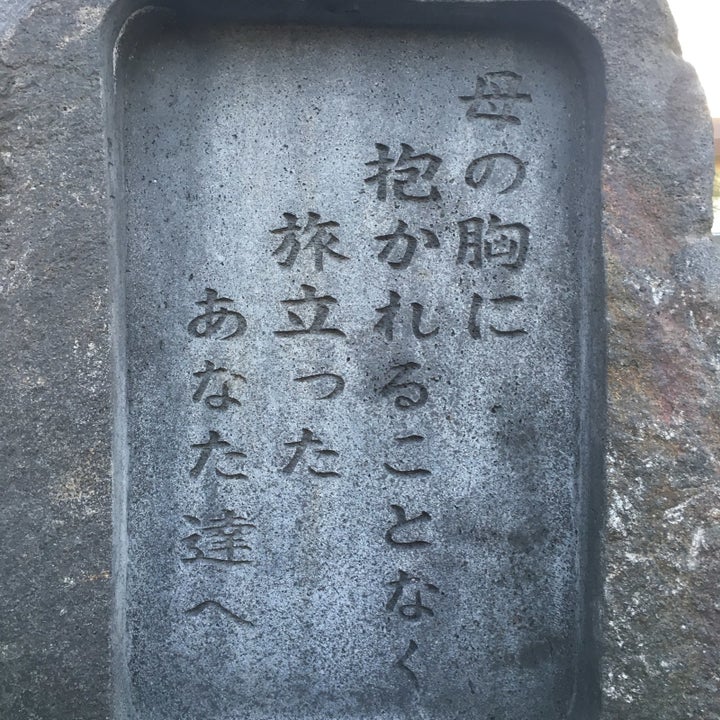 母の胸に
抱かれることなく
旅立った
あなた達へ